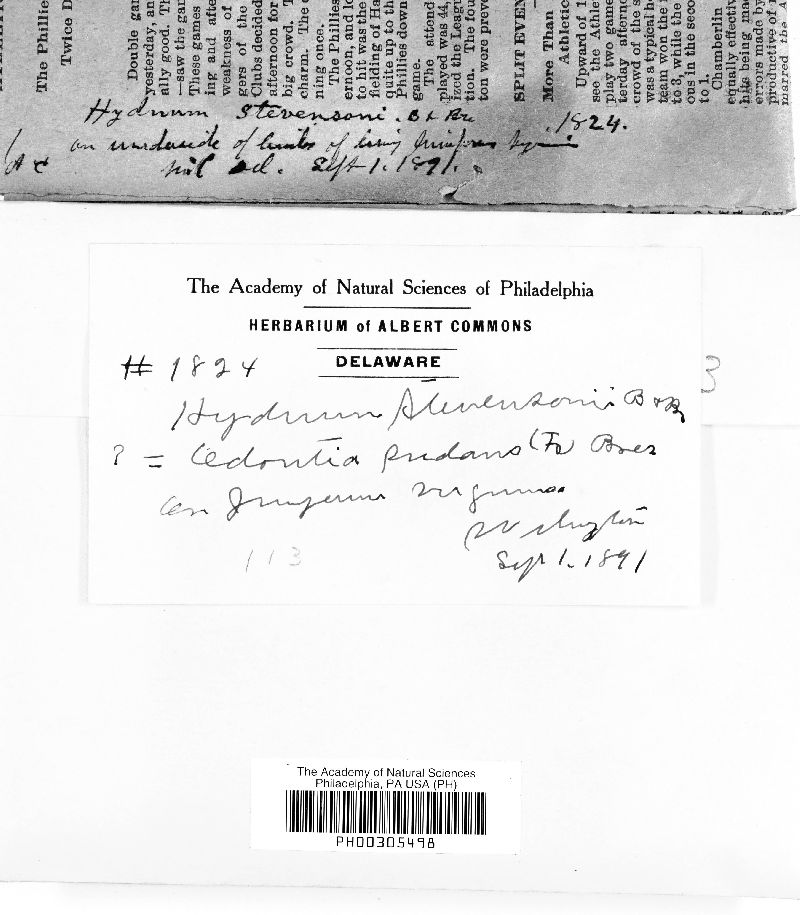 The Phillie
Twice D
Double gar
yesterday, an
ally good. Th
—saw the gar
These games
ing and afte
weakness of
gers of the
Clubs decided
afternoon for
big crowd. T
charm. The
ning once.
The Phillies
ernoon, and lo
to hit was the
fielding of Ha
quite up to th
Phillies down
game.
The attend
played was 44,
ized the Leagu
tion. The fou
ton were preve
SPLIT EVEN
More Than
Athletic
Upward of 1
see the Athle
play two game
terday afterno
crowd of the s
was a typical he
team won the
to 3, while the
ous in the seco
to 1.
Chamberlin
equally effectiv
his being mad
errors made by
productive of
marred the A
Hydnum Stevensoni. B & Br 1824.
on underside of limbs of living Juniperus
A C Wil Del. Sept 1. 1891.
The Academy of Natural Sciences of Philadelphia
HERBARIUM of ALBERT COMMONS
DELAWARE
# 1824
3
Hydnum Stevensonii B & Br
? = Odontia pudans (Fr) Bres
on Juniperus virginiana
Wilmington
Sept 1. 1891
113
The Academy of Natural Sciences
Philadelphia, PA USA (PH)
PH00305498